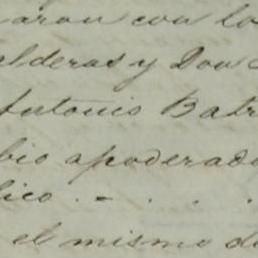 aron con lo
alderas y Don
Antonio Batr
bio apoderado
lico . - . . .
el mismo di